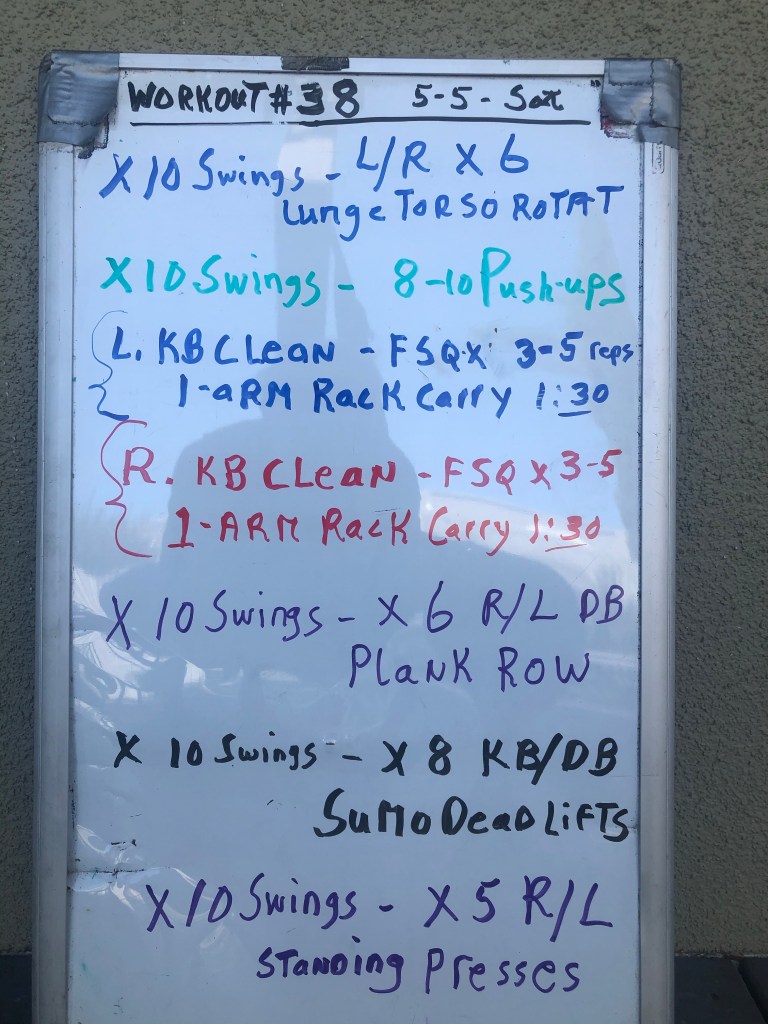 WORKOUT #38 5-5-Sat
X 10 Swings - L/R X 6
Lunge TORSO ROTAT
X 10 Swings - 8-10 Push-ups
L. KB CLeaN - FSQ X 3-5 reps
1-aRM Rack Carry 1:30
R. KB CLeaN - FSQ X 3-5
1-ARM Rack Carry 1:30
X 10 Swings - X 6 R/L DB
PLaNK ROW
X 10 Swings - X 8 KB/DB
SuMo DeaD LiFTS
X 10 Swings - X 5 R/L
STaNDing Presses